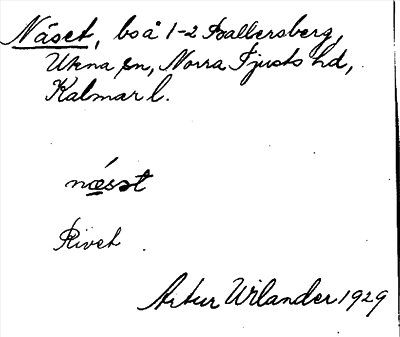 Näset, bs å 1-2 Balbersberg,
Ukna sn, Norra Tjusts hd,
Kalmar l.
næsət
Rivet.
Artur Wilander 1929